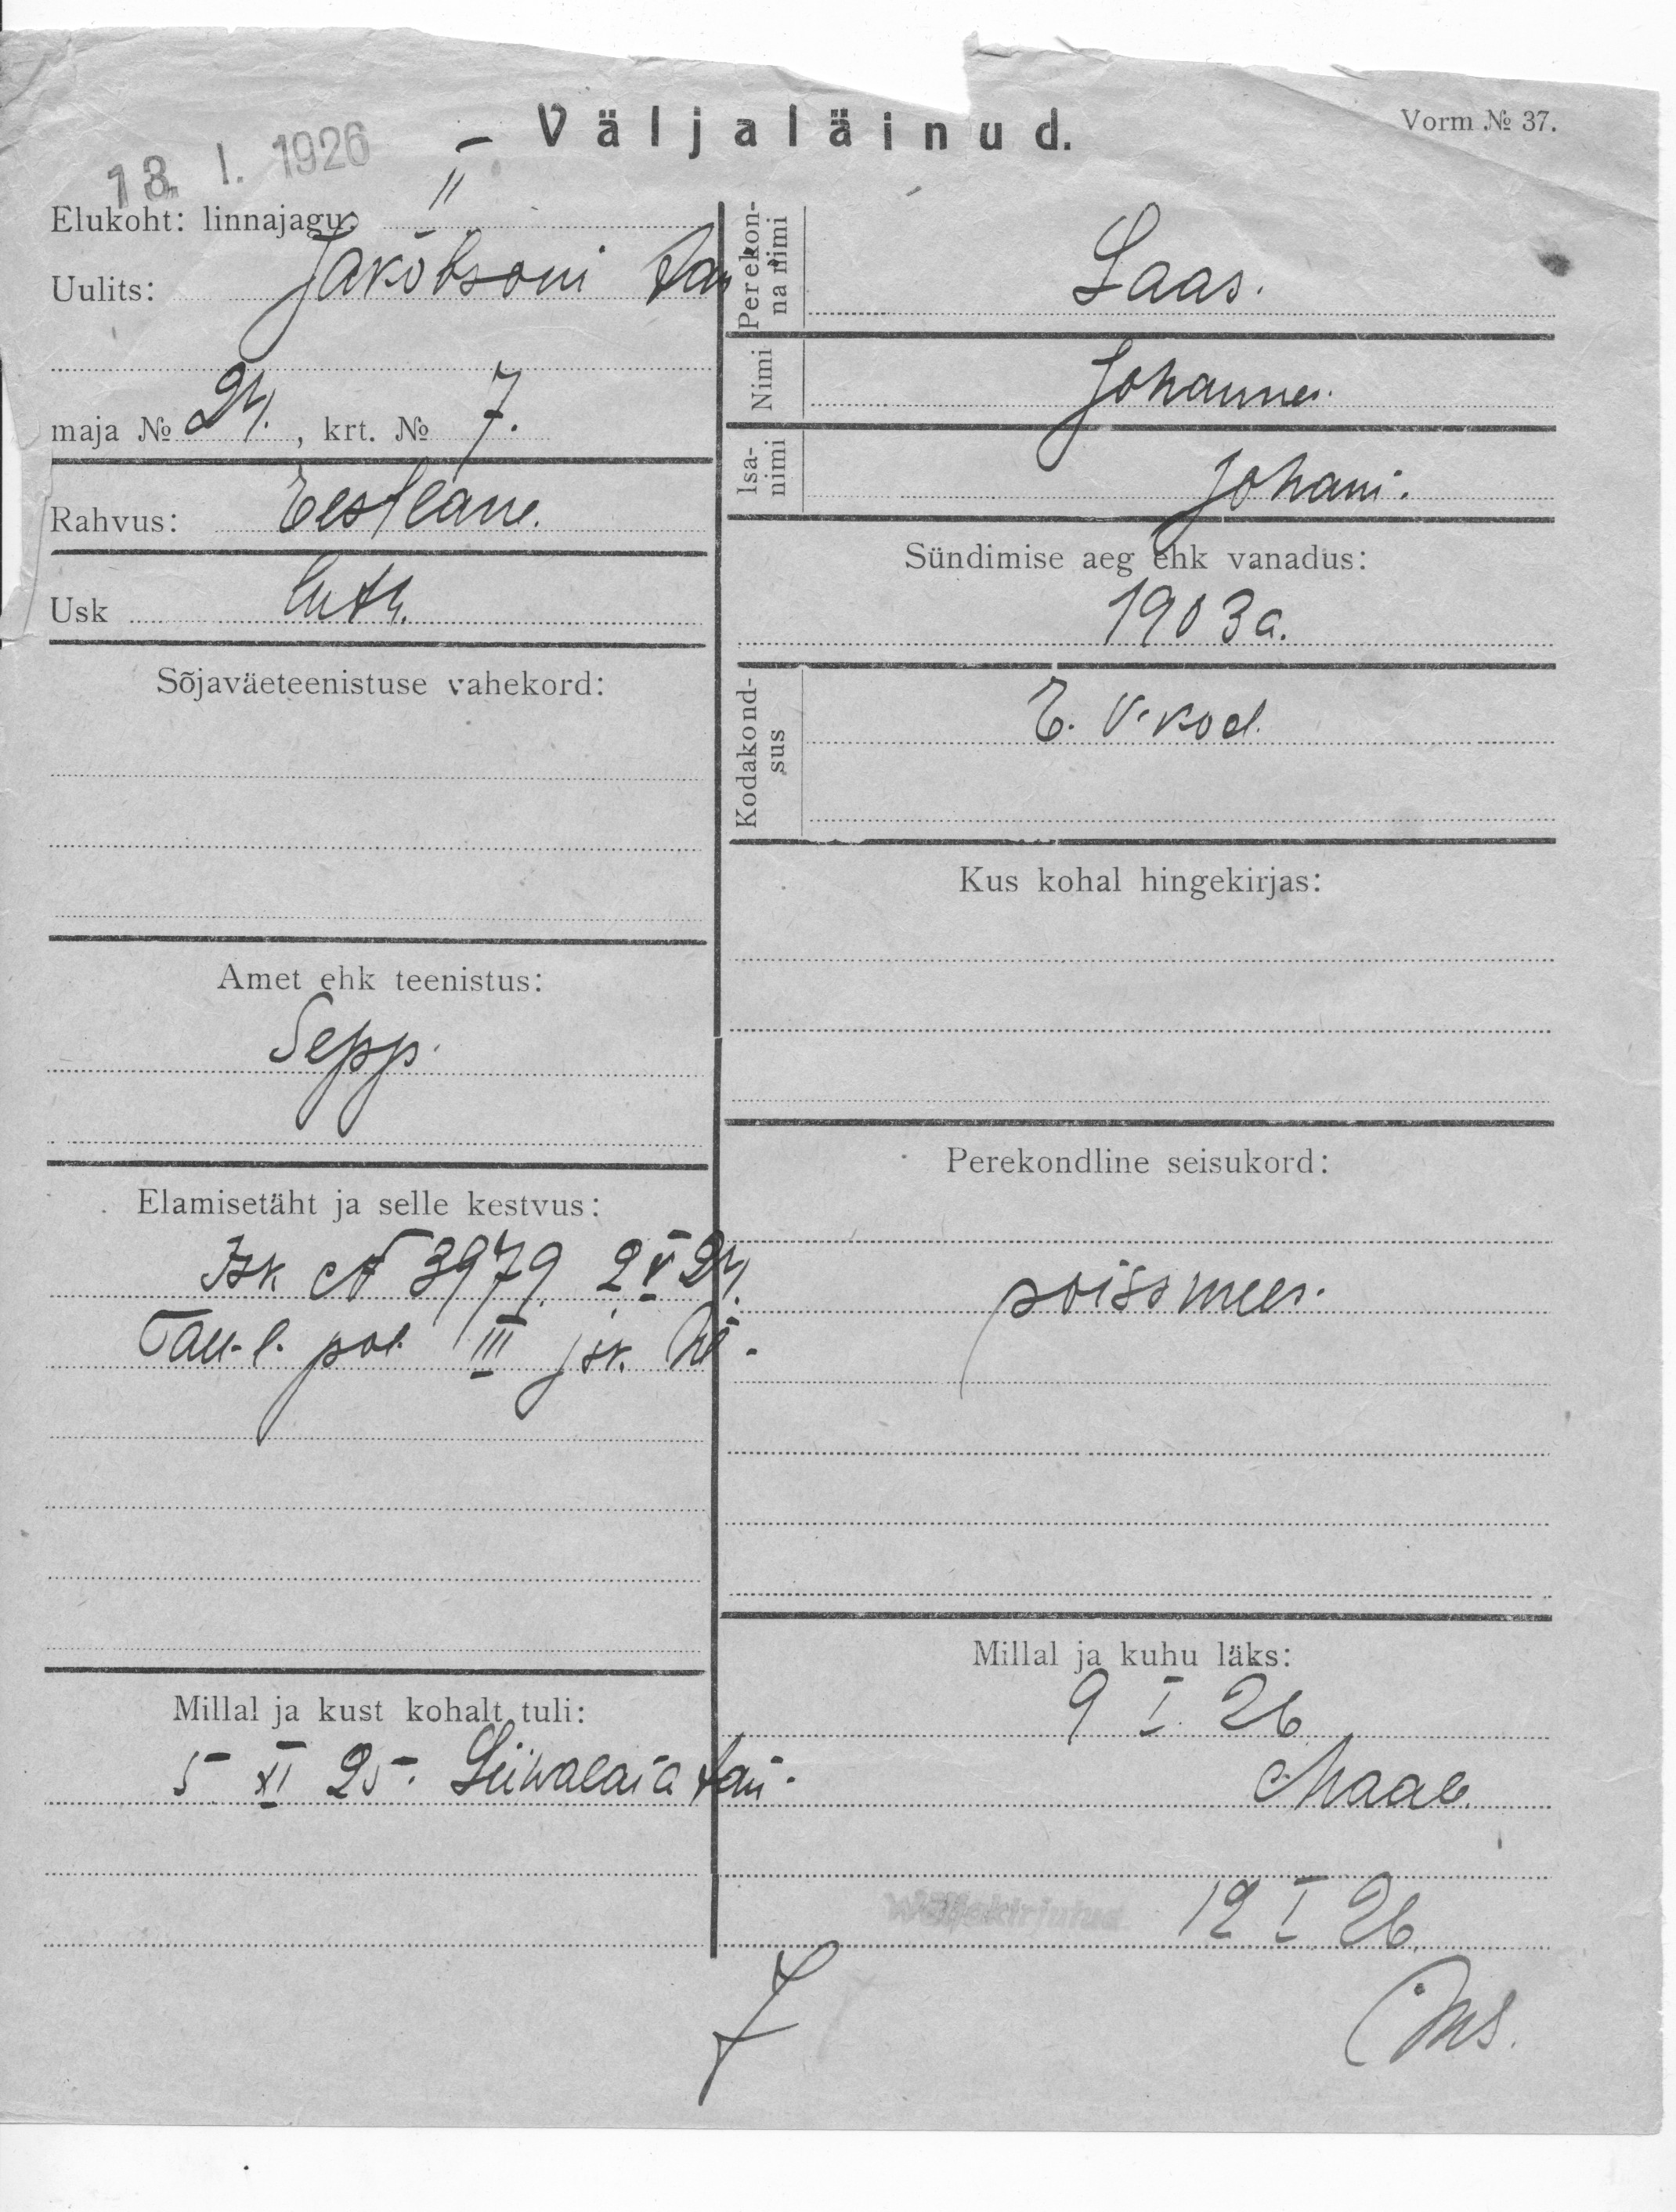 Väljaläinud.
Vorm № 37.
13. I. 1926
Elukoht: linnajagu: II
Uulits: Jakobsoni tän
maja № 24., krt. № 7.
Rahvus: Eestlane.
Usk luth.
Sõjaväeteenistuse vahekord:
Amet ehk teenistus:
Sepp.
Elamisetäht ja selle kestvus:
Isk № 3979. 2 V 24.
Tall. l. pol. III jsk. ül.
Millal ja kust kohalt tuli:
5 XI 25. Liiwalaia tän.
Perekonna nimi
Laas.
Nimi
Johannes.
Isa-nimi
Johani.
Sündimise aeg ehk vanadus:
1903 a.
Kodakond-sus
E. V. kod.
Kus kohal hingekirjas:
Perekondline seisukord:
poissmees.
Millal ja kuhu läks:
9 I. 26
Maale.
Wäljakirjutud
12 I 26.